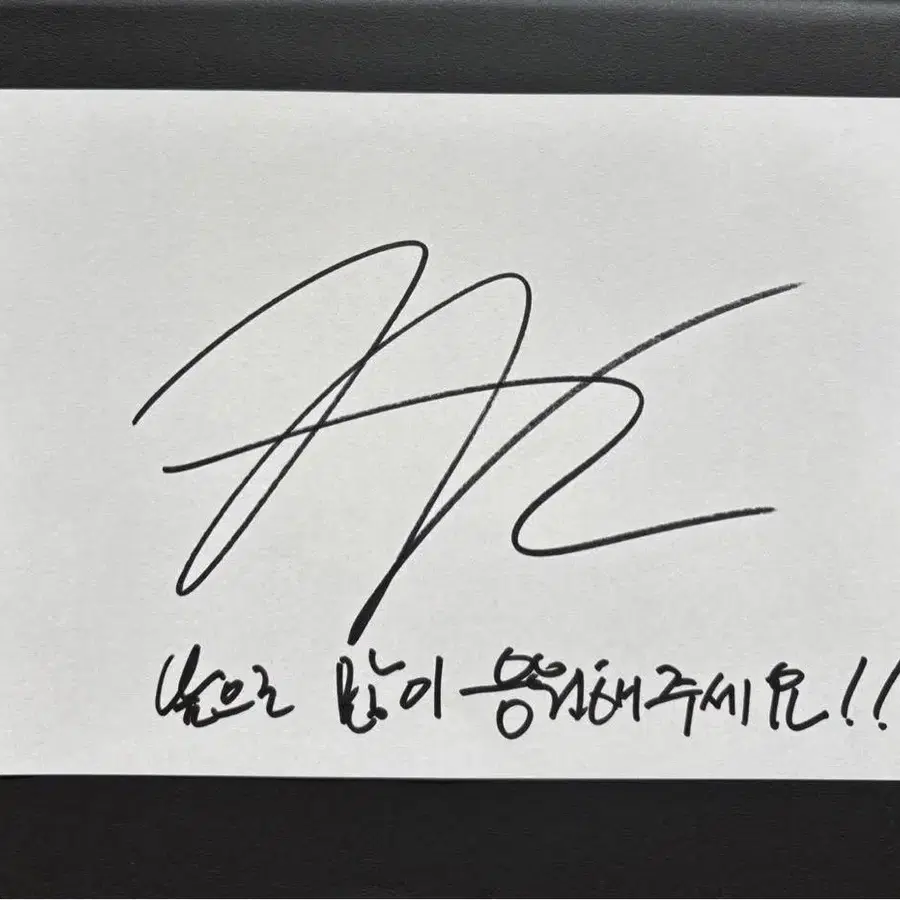 앞으로 많이 응원해주세요!!